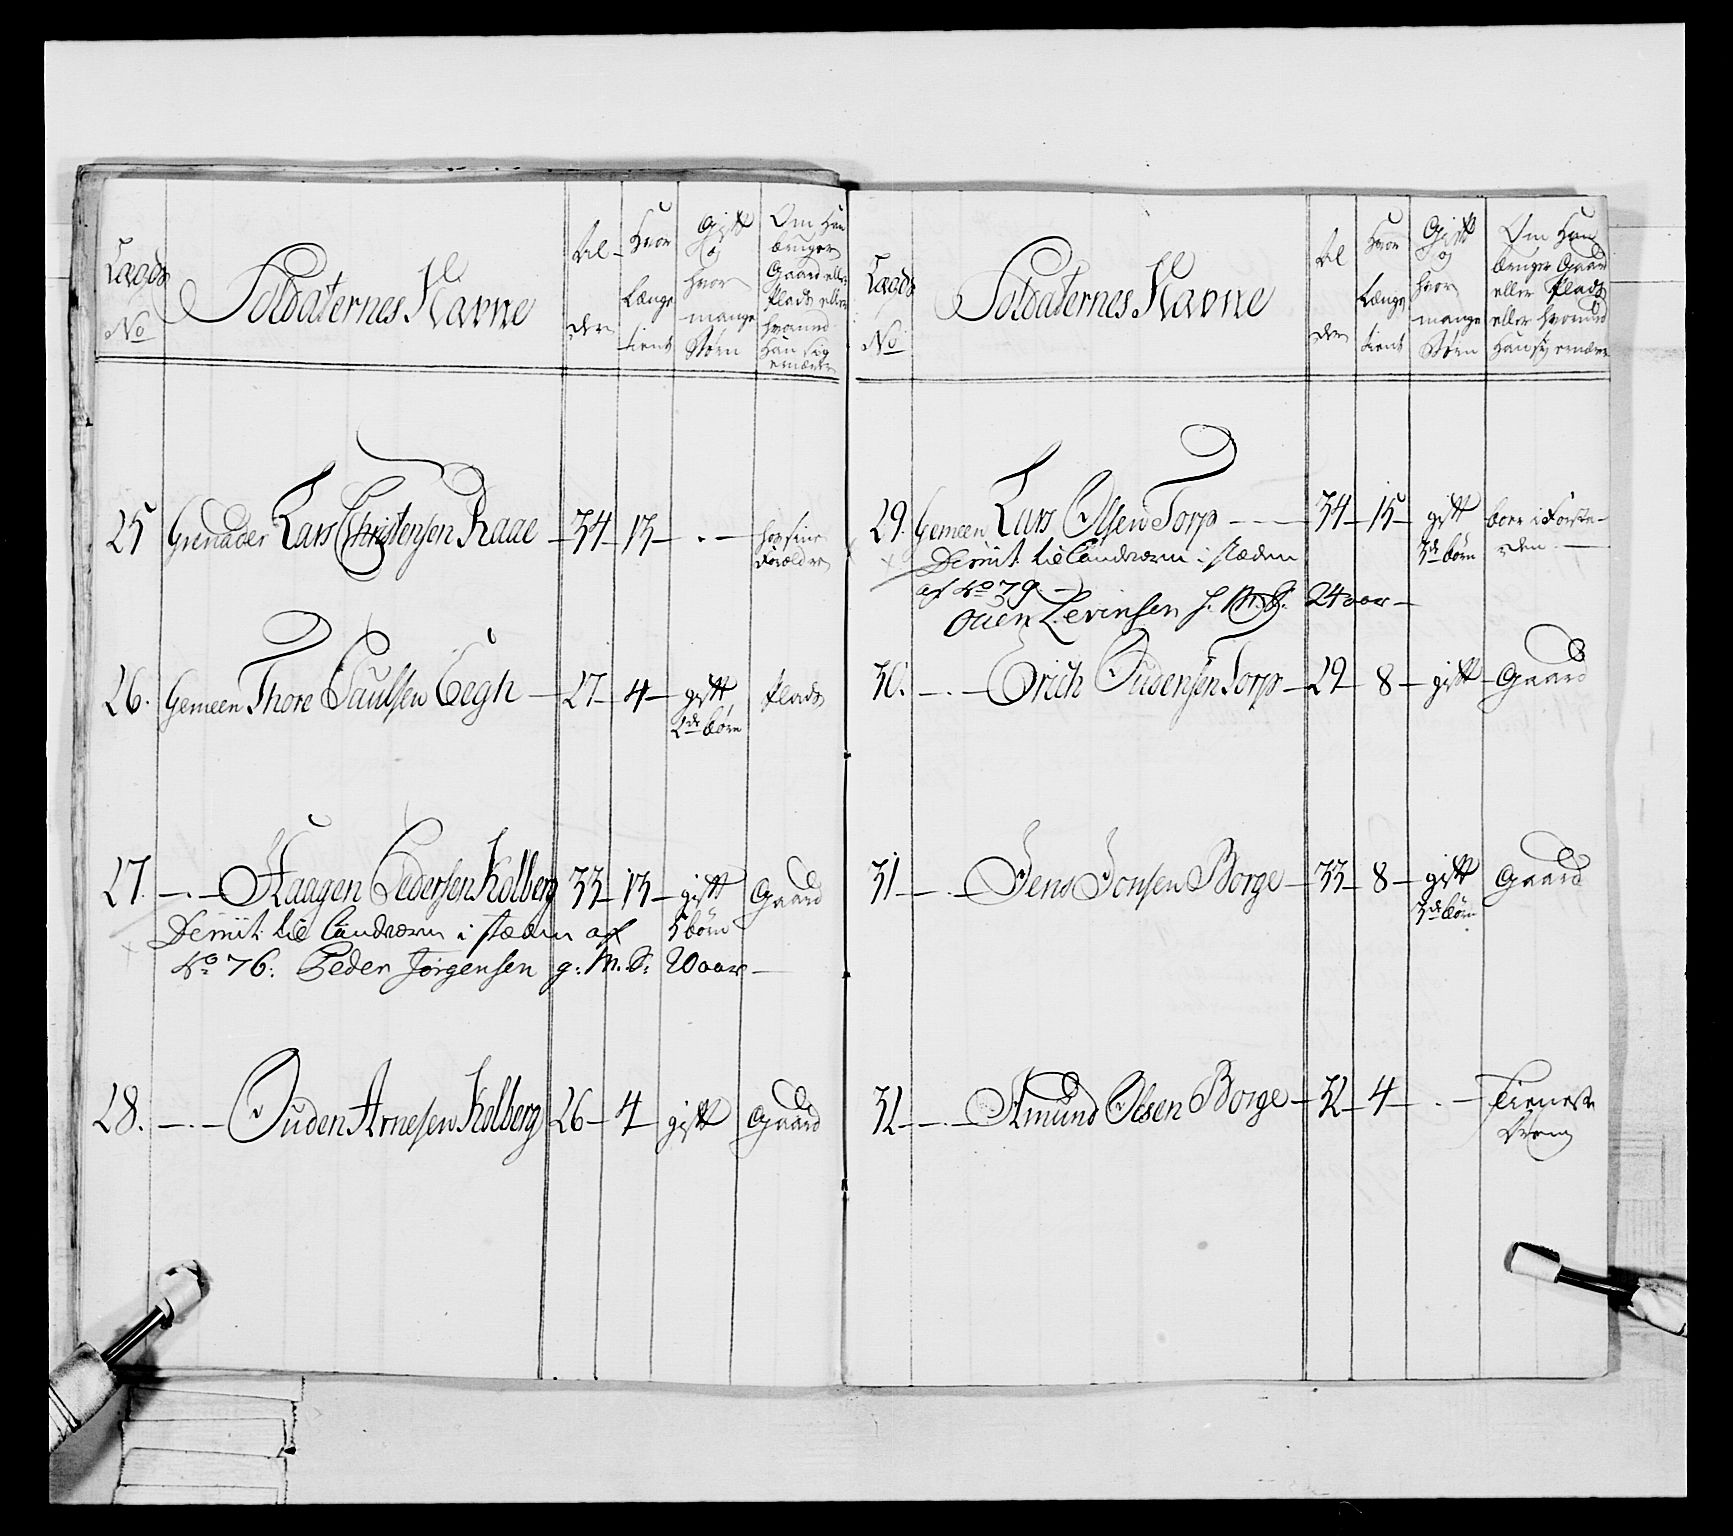 Lægds No
Soldaternes Navne
Alderen
Hvor Længe tient
Gift og hvor mange Børn
Om Han bruger Gaard eller Plads eller hvormed Han sig ernærer
25 Grenader Lars Christensen Raae 34 13 . hos sine Forældre
26. Gemeen Thore Paulsen Eegh 27 4 gift Plads
2de børn
27. Haagen Pedersen Kolberg 33 13 gift Gaard
Demit: til Landværn i stæden af 5 børn
No 76: Peder Jørgensen g: M. S: 20 aar
28. Ouden Arnesen Kolberg 26 4 gift Gaard
Lægds No
Soldaternes Navne
Alderen
Hvor Længe tient
Gift og hvor mange Børn
Om Han bruger Gaard eller Plads eller hvormed Han sig ernærer
29. Gemeen Lars Olsen Torp 34 15 gift
3de børn
Demit: til Landværn i stæden
af No 79
Ouen Levinsen f. M. S: 24 aar
30. Erich Oudensen Torp 29 8 gift Gaard
31 Jens Jonsen Borge 33 8 gift Gaard
3de børn
32 Amund Olsen Borge 32 4 . Tieneste
Dreng